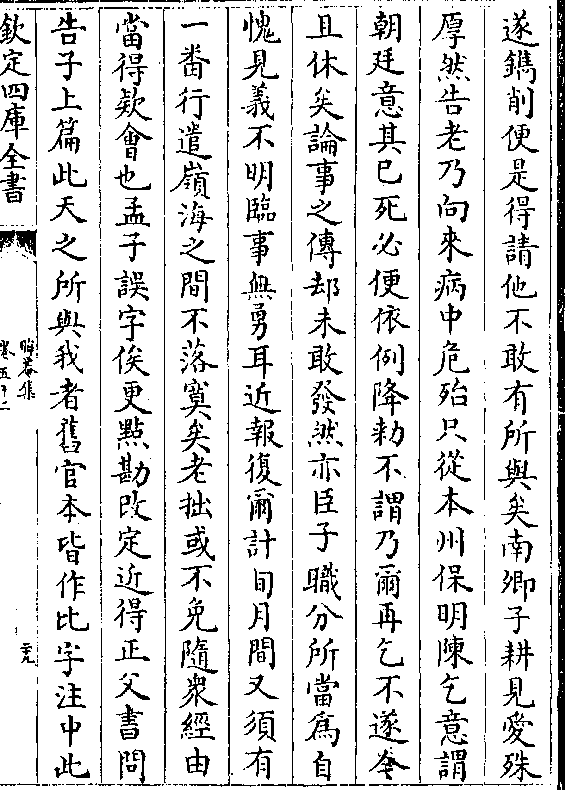 遂鐫削便是得請他不敢有所與矣南卿子耕見愛殊
厚然告老乃向來病中危殆只從本州保明陳乞意謂
朝廷意其已死必便依例降勑不謂乃爾再乞不遂今
且休矣論事之傳却未敢發然亦臣子職分所當為自
愧見義不明臨事無勇耳近報復爾計旬月間又須有
一畨行遣嶺海之間不落寞矣老拙或不免隨衆經由
當得欵會也孟子誤字俟更㸃勘改定近得正父書問
告子上篇此天之所與我者舊官本皆作比字注中此
欽定四庫全書
晦菴集
卷五十二
二十九